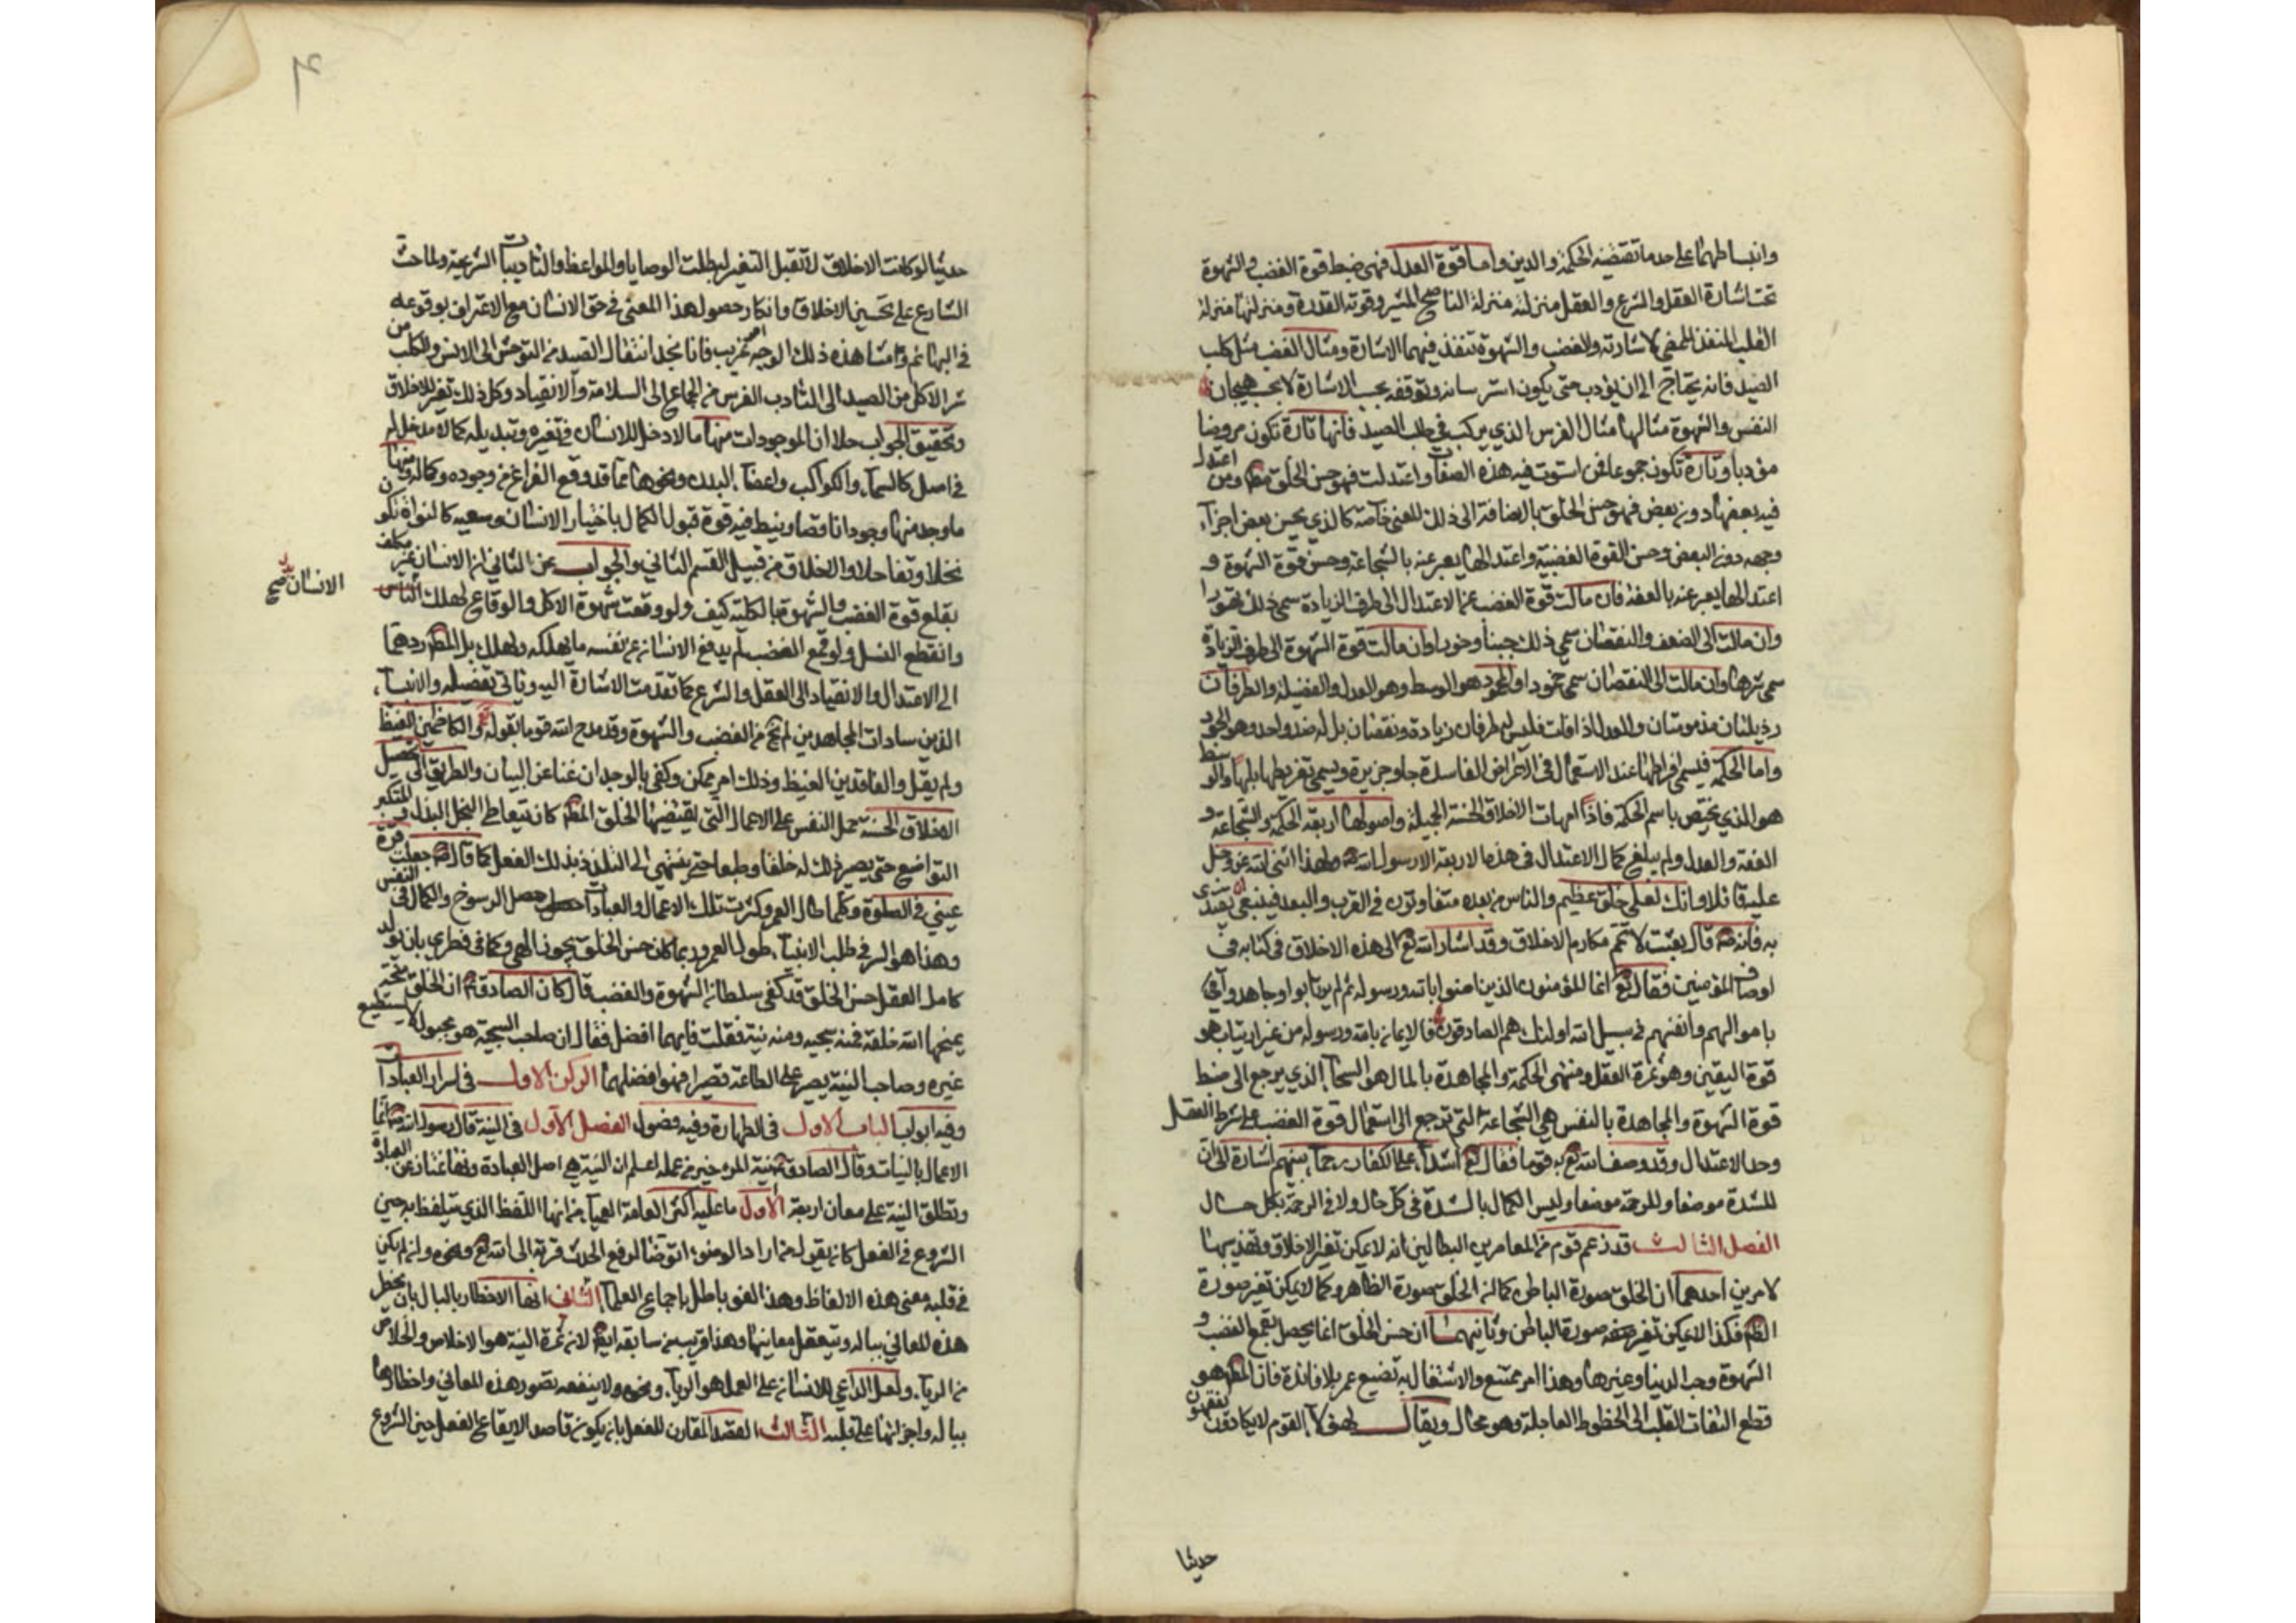 وانبساطهما على حد ما تقتضيه الحكمة والدين واما قوة العدل فهي ضبط قوة الغضب والشهوة
تحت اشارة العقل والشرع والعقل منزلته منزلة الناصح المشير وقوته القدرة ومنزلتها منزلة
القلب المنفذ الممضي لاشارته والغضب والشهوة تنفذ فيهما الاشارة ومثال الغضب مثل كلب
الصيد فانه يحتاج الى ان يؤدب حتى يكون استرساله وتوقفه بحسب الاشارة لا بحسب هيجان
النفس والشهوة مثالها مثال الفرس الذي يركب في طلب الصيد فانها تارة تكون مروضا
مؤدبا وتارة تكون جموعا فمن استوت فيه هذه الصفات واعتدلت فهو حسن الخلق مط ومن اعتدل
فيه بعضها دون بعض فهو حسن الخلق بالاضافة الى ذلك المعنى خاصة كالذي يحسن بعض اجزاء
وجهه دون البعض وحسن القوة الغضبية واعتدالها يعبر عنه بالشجاعة وحسن قوة الشهوة و
اعتدالها يعبر عنه بالعفة فان مالت قوة الغضب عن الاعتدال الى طرف الزيادة سمي ذلك تهورا
وان مالت الى الضعف والنقصان سمي ذلك جبنا وخورا وان مالت قوة الشهوة الى طرف الزيادة
سمي شرها وان مالت الى النقصان سمي خمودا والمحمود هو الوسط وهو العدل والفضيلة والطرفان
رذيلتان مذمومتان والعدل اذا فات فليس له طرفان زيادة ونقصان بل له ضد واحد وهو الجور
واما الحكمة فيسمى افراطها عند الاستعمال في الاغراض الفاسدة جاوجزيرة ويسمى تفريطها بلها والوسط
هو الذي يختص باسم الحكمة فاذا امهات الاخلاق الحسنة الجميلة واصولها اربعة الحكمة والشجاعة و
العفة والعدل ولم يبلغ كمال الاعتدال في هذه الاربعة الا رسول الله ص ولهذا اثنى الله عز وجل
عليه قائلا وانك لعلى خلق عظيم والناس من بعده متفاوتون في القرب والبعد فينبغي ان يقتدى
به فانه ص قال بعثت لاتمم مكارم الاخلاق وقد اشار الله تع الى هذه الاخلاق في كتابه في
اوصاف المؤمنين فقال تع انما المؤمنون الذين امنوا بالله ورسوله ثم لم يرتابوا وجاهدوا في
باموالهم وانفسهم في سبيل الله اولئك هم الصادقون فالايمان بالله ورسوله من غير ارتياب هو
قوة اليقين وهو ثمرة العقل ومنتهى الحكمة والمجاهدة بالمال هو السخاء الذي يرجع الى ضبط
قوة الشهوة والمجاهدة بالنفس هي الشجاعة التي ترجع الى استعمال قوة الغضب على شرط العقل
وحد الاعتدال وقد وصف الله تع به قوما فقال تع اشداء على الكفار رحماء بينهم اشارة الى ان
للشدة موضعا وللرحمة موضعا وليس الكمال بالشدة في كل حال ولا في الرحمة بكل حال
الفصل الثالث قد زعم قوم من المعاصرين البطالين انه لا يمكن تغير الاخلاق وتهذيبها
لامرين احدهما ان الخلق صورة الباطن كما ان الخلق صورة الظاهر وكما لا يمكن تغير صورة
الظ فكذا لا يمكن تغير صورة الباطن وثانيهما ان حسن الخلق انما يحصل بقمع الغضب و
الشهوة وحب الدنيا وغيرها وهذا امر ممتنع والاشتغال به تضييع عمر بلا فائدة فان المط هو
قطع التفات القلب الى الحظوظ العاجلة وهو محال ويقال لهؤلاء القوم لا يكادون يفقهون
حديثا
حديثا لو كانت الاخلاق لا تقبل التغير لبطلت الوصايا والمواعظ والتاديبات الشرعية ولما حث
الشارع على تحسين الاخلاق وانكار حصول هذا المعنى في حق الانسان مع الاعتراف بوقوعه
في البهائم ومشاهدة ذلك الوجه امر غريب فانا نجد انتقال الصيد من التوحش الى الانس والكلب من
شر الاكل من الصيد الى التادب والفرس من الجماع الى السلامة والانقياد وكل ذلك تغير للاخلاق
وتحقيق الجواب حلا ان الموجودات منها ما لا دخل للانسان في تغيره وتبديله كما لا مدخل له
في اصل كالسماء والكواكب واعضاء البدن ونحوها مما قد وقع الفراغ من وجوده وكماله ومنها
ما وجد منها وجودا ناقصا وينبط فيه قوة قبول الكمال باختيار الانسان وسعيه كالنواة تكون
نخلا وتفاحا والاخلاق من قبيل القسم الثاني والجواب عن الثاني ان الانسان غير مكلف
الانسان صح
بقلع قوة الغضب والشهوة بالكلية كيف ولو وقعت شهوة الاكل والوقاع لهلك الناس
وانقطع النسل ولو قمع الغضب لم يدفع الانسان عن نفسه ما يهلكه ولهلك بل المط ردهما
الى الاعتدال والانقياد الى العقل والشرع كما تقدمت الاشارة اليه وياتي تفصيله والانبياء
الذين سادات المجاهدين لم تخ من الغضب والشهوة وقد مدح الله قوما بقوله تع والكاظمين الغيظ
ولم يقل والفاقدين الغيظ وذلك امر ممكن وكفى بالوجدان غنا عن البيان والطريق الى تحصيل
الاخلاق الحسنة حمل النفس على الاعمال التي يقتضيها الخلق المط كان يتعاطى البخل البذل والمتكبر
التواضع حتى يصير ذلك له خلقا وطبعا حتى ينتهي الى التلذذ بذلك الفعل كما قال ص جعلت قرة
عيني في الصلوة وكلما طال العمر وكثرت تلك الاعمال والعبادات حصل الرسوخ والكمال في النفس
وهذا هو السر في طلب الانبياء طول العمر وربما كان حسن الخلق بجود الهي وكما في فطري بان يولد
كامل العقل حسن الخلق قد كفي سلطان الشهوة والغضب قال كان الصادق ع ان الخلق منحة
يمنحها الله خلقه فمنه سجيه ومنه نية فقلت فايهما افضل فقال ان صاحب السجية هو مجبول لا يستطيع
غيره وصاحب النية يصبر على الطاعة تصبرا فهو افضلهما الركن الاول في اسرار العبادات
وفيه ابواب الباب الاول في الطهارة وفيه فصول الفصل الاول في النية قال رسول الله ص انما
الاعمال بالنيات وقال الصادق ع نية المرء خير من عمله اعلم ان النية هي اصل العبادة
وتطلق النية على معان اربعة الاول ما عليه اكثر العامة العمياء من انها اللفظ الذي يتلفظ به حين
الشروع في الفعل كان يقول من اراد الوضوء اتوضأ لرفع الحدث قربة الى الله تع ونحوه وان لم يكن
في قلبه معنى هذه الالفاظ وهذا لغو باطل باجماع العلماء الثاني انها الاخطار بالبال بان يخطر
هذه المعاني بباله ويتعقل معانيها وهذا قريب من سابقه ايض لان ثمرة النية هو الاخلاص والخلاص
من الرياء ولعل الداعي للانسان على العمل هو الرياء ونحوه ولا ينفعه تصور هذه المعاني واخطارها
بباله واجرائها على قلبه الثالث القصد المقارن للفعل بان يكون قاصد الايقاع الفعل حين الشروع